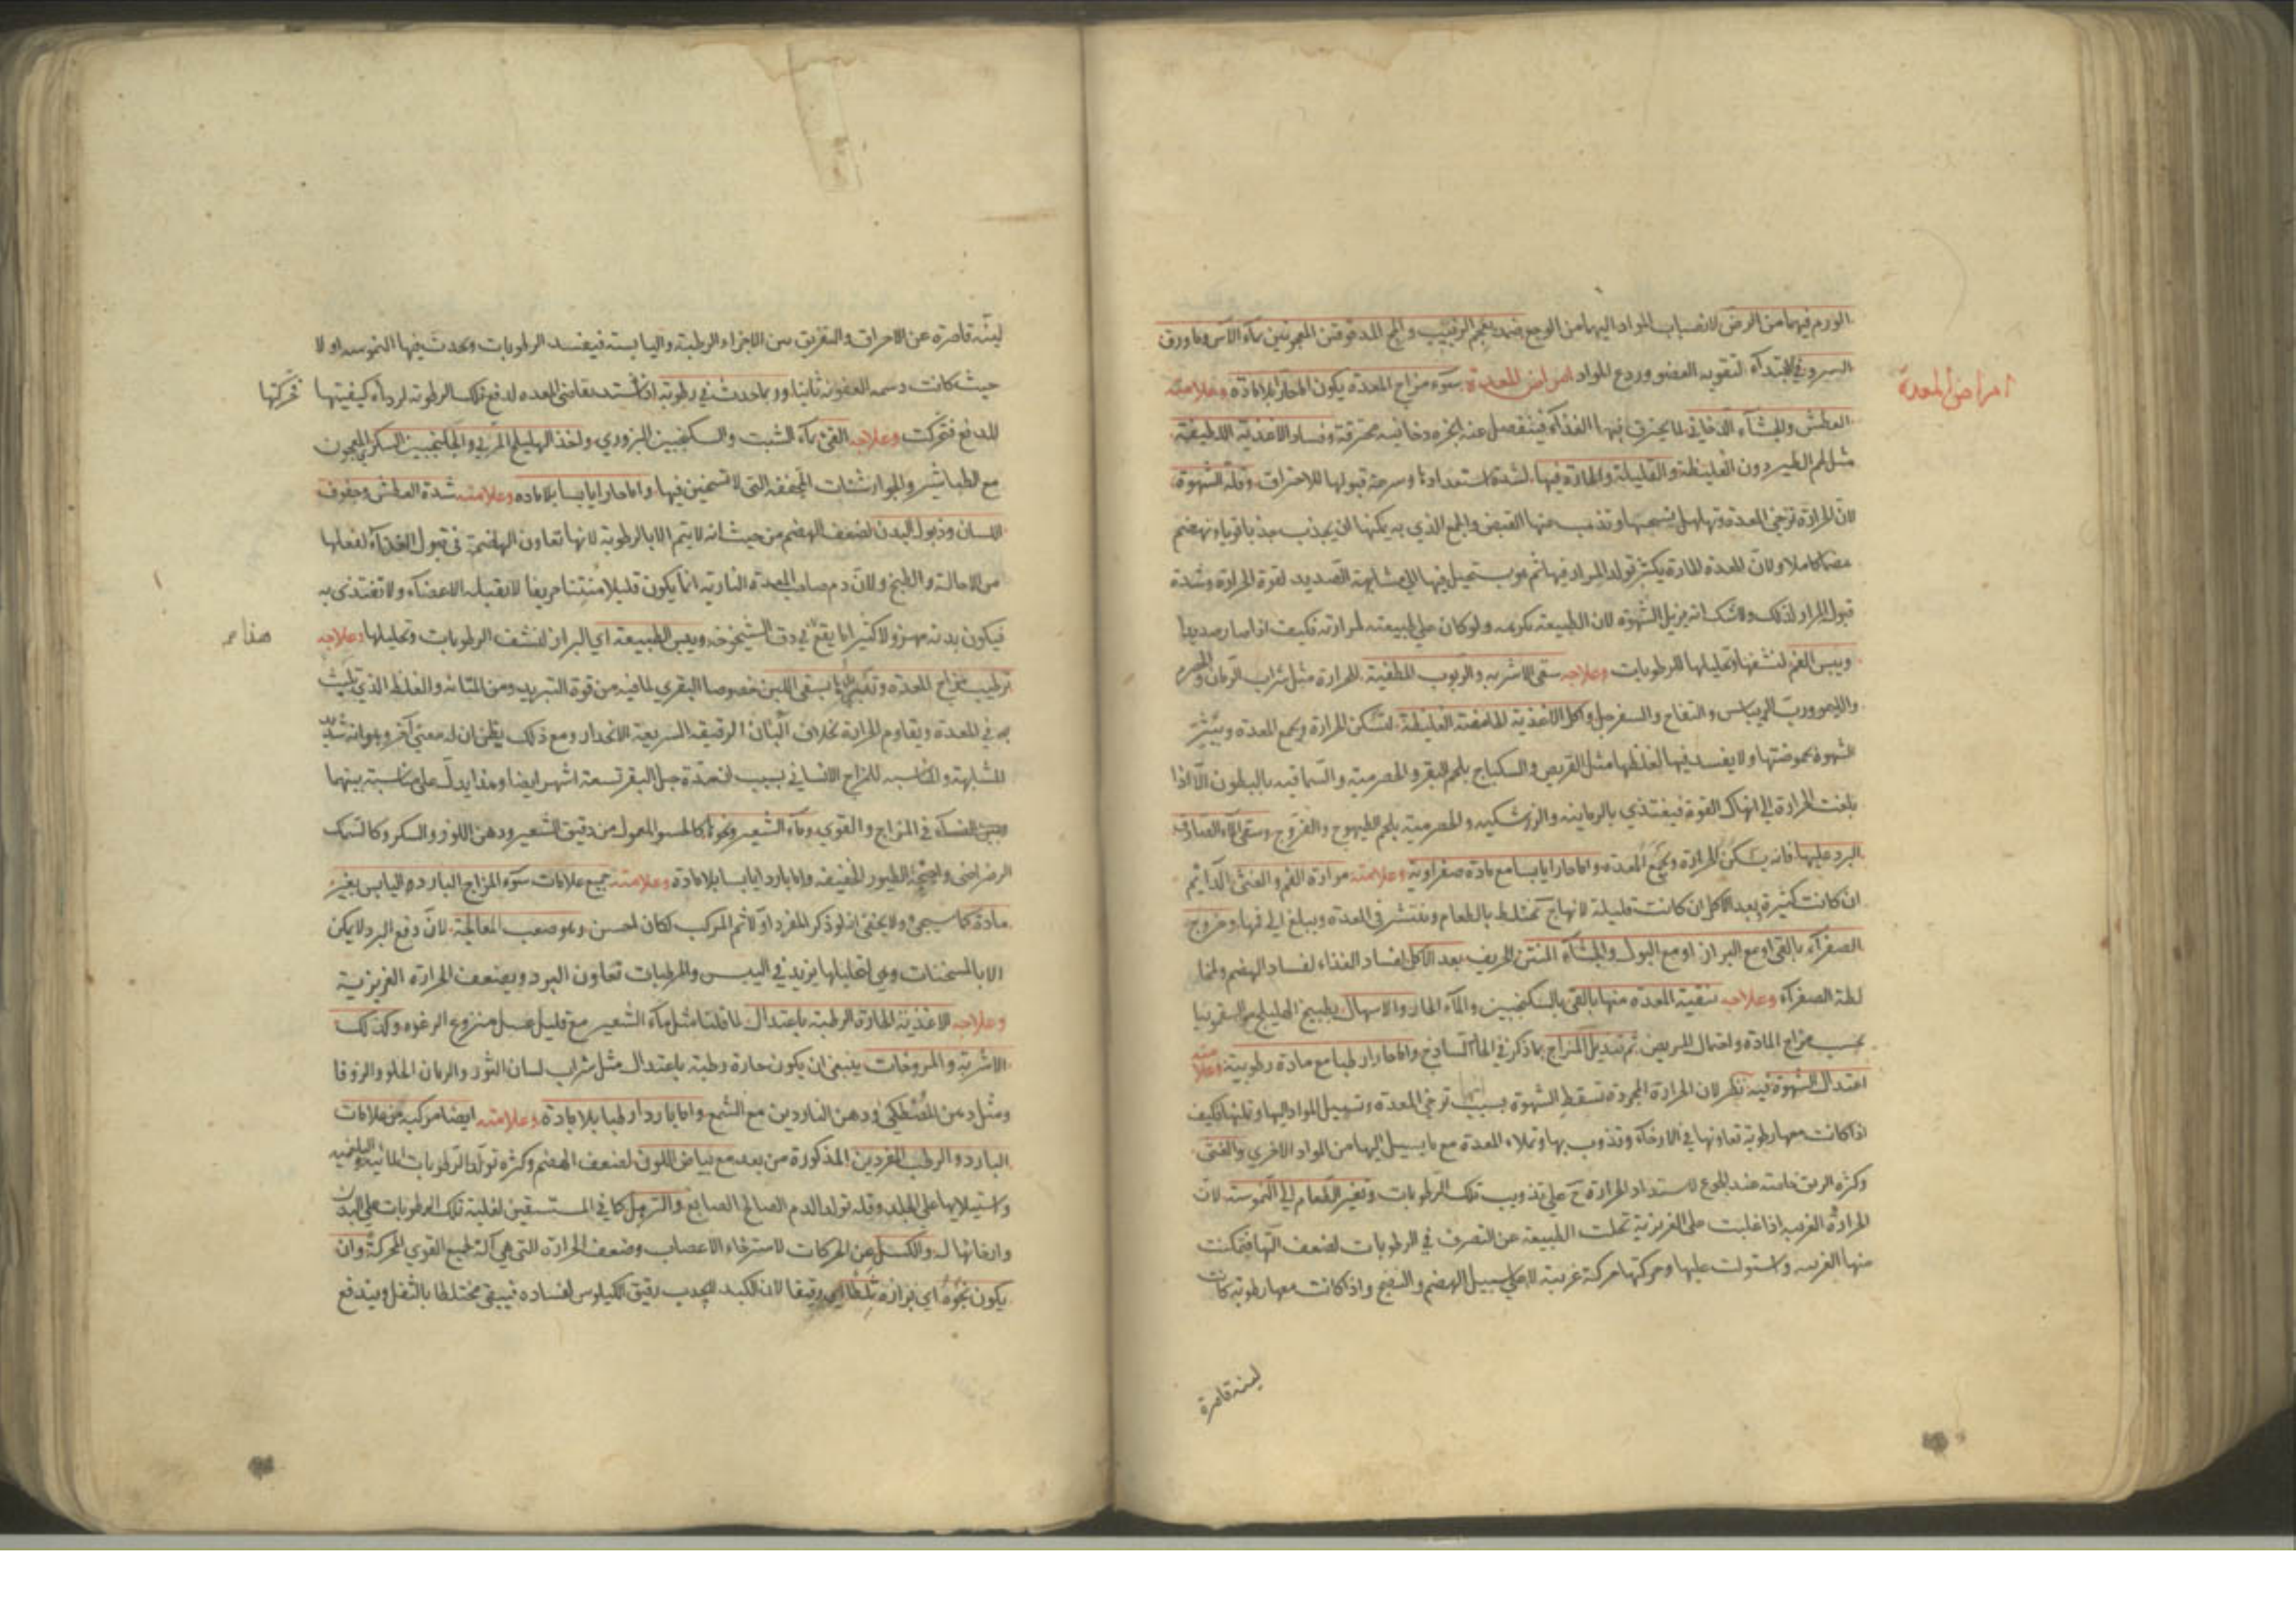 الورم فيهما من الرض لانصباب المواد اليهما من الوجع ضمد بعجم الزبيب و المدقوقين المعجونين بماء الآس وماء ورق
السرو في الابتداء لتقويه العضو وردع المواد امراض المعدة سوء مزاج المعدة يكون اما حار بلامادة وعلامته
امراض المعدة
العطش والجشاء الدخاني لما يحترق فيها الغذاء فينفصل عنه ابخره دخانيه محترقة وفساد الاغذية اللطيفة
مثل لحم الطير دون الغليظة والقليلة والحارة فيها لشدة استعدادها وسرعة قبولها للاحتراق وقلة الشهوة
لان الحرارة ترخى المعدة وتهلهل نسجها وتذهب عنها القبض والجمع الذي به يمكنها ان يجذب جذبا قويا وتهضم
هضما كاملا ولان المعدة الحارة يكثر تولد المرار فيها ثم هو يستحيل فيها الى مشابهة الصديد لقوة الحرارة وشدة
قبول المرار لذلك ولاشك انه مزيل الشهوة لان الطبيعة تكرهه ولو كان على طبيعته لمرارته فكيف اذا صار صديديا
ويبس الفم لنشفها وتحليلها للرطوبات وعلاجه سقى الاشربه والربوب المطفية للحرارة مثل شراب الرمان والحصرم
والليمو ورب الريباس والتفاح والسفرجل واكل الاغذية الحامضة الغليظة لتسكن الحرارة ويجمع المعدة ويثير
الشهوة بحموضتها ولا يفسد فيها لغلظها مثل القريص والسكباج بلحم البقر والحصرمية والسماقيه بالبطون الا اذا
بلغت الحرارة الى انهاك القوة فيغتذي بالرمانيه والزرشكيه والحصرمية بلحم الطيهوج والفروج وسقى الماء الصادق
البرد عليها فانه يسكن الحرارة ويجمع المعدة واما حارا يابسا مع مادة صفراوية وعلامته مرارة الفم والغثى الدائم
ان كانت كثيرة وبعد الاكل ان كانت قليلة لانها ح تختلط بالطعام وتنتشر في المعدة ويبلغ الى فمها وخروج
الصفراء بالقى او مع البراز او مع البول والجشاء المنتن الحريف بعد الاكل لفساد الغذاء لفساد الهضم ولمخا
لطة الصفراء وعلاجه تنقية المعدة منها بالقى بالسكنجبين والماء الحار والاسهال بطبيخ الهليلج مع السقمونيا
بحسب مزاج المادة واحتمال المريض ثم تبديل المزاج بما ذكر في الحار الساذج واما حارا رطبا مع مادة رطوبية وعلامته
اعتدال الشهوة فيه نظر لان الحرارة المجردة تسقط الشهوة بسبب انها ترخى المعدة وتسيل المواد اليها وتملأها فكيف
اذا كانت معها رطوبة تعاونها في الارخاء وتذوب بها وتملاء المعدة مع ما يسيل اليها من المواد الاخرى والغثى
وكثرة الريق خاصته عند الجوع لاستداد الحرارة ح على تذويب تلك الرطوبات وتغير الطعام الى الحموسته لان
الحرارة الغريبه اذا غلبت على الغريزية تخلت الطبيعة عن التصرف في الرطوبات لضعف آلتها فتمكنت
منها الغريبه واستولت عليها وحركتها حركة غريبة لا على سبيل الهضم والنضج واذا كانت معها رطوبة كانت
لينه قاصرة
لينة قاصرة عن الاحراق والتفريق بين الاجزاء الرطبة واليابسة فيفسد الرطوبات ويحدث فيها الحموسه او لا
حيث كانت دسمه العفونه ثانيا وربما حدث في رطوبة اذا اشتد تقاضى المعدة لدفع تلك الرطوبة لرداءة كيفيتها فحركتها
للدفع فتحركت وعلاجه القى بماء الشبت والسكنجبين البزوري واخذ الهليلج المربى والجلنجبين السكري المعجون
مع الطباشير والجوارشنات المجففه التى لا تسخين فيها واما حارا يابسا بلا ماده وعلامته شدة العطش وجفوف
اللسان وذبول البدن لضعف الهضم من حيث انه لا يتم الا بالرطوبة لانها تعاون الهاضمة في قبول الغذاء لفعلها
من الاحالة والطبخ ولان دم صاحب المعدة النارية انما يكون قليلا منتنا حريفا لا تقبله الاعضاء ولا تغتذى به
فيكون بدنه مهزولا كثيرا ما يقع في دق الشيخوخه ويبس الطبيعة اى البراز لنشف الرطوبات وتحليلها وعلاجه
ترطيب مزاج المعدة وتبريدها بسقى اللبن خصوصا البقري لما فيه من قوة التبريد ومن المتانة والغلظ الذي يلبث
به في المعدة ويقاوم الحرارة بخلاف ألبان الرقيقه السريعة الانحدار ومع ذلك يظن ان له معنى آخر وهو انه شديد
المشابهة والمناسبه للمزاج الانساني بسبب ان مدة حبل البقر تسعة اشهر ايضا وهذا يدل على مناسبة بينهما
وبين النساء في المزاج والقوى وماء الشعير ونحوها كالحسو المعمول من دقيق الشعير ودهن اللوز والسكر وكالسمك
الرضراضى واجنحة الطيور الخفيفه واما باردا يابسا بلا مادة وعلامته جميع علامات سوء المزاج البارد واليابس بغير
مادة كما سيجئ ولا يخفى انه لو ذكر المفرد اولا ثم المركب لكان احسن وهو صعب المعالجة لان دفع البرد لا يمكن
الا بالمسخنات وهى لتحليلها يزيد في اليبس والمرطبات تعاون البرد ويضعف الحرارة الغريزية
وعلاجه الاغذية الحارة الرطبة باعتدال لما قلنا مثل ماء الشعير مع قليل عسل منزوع الرغوه وكذلك
الاشربة والمروخات ينبغى ان يكون حارة رطبة باعتدال مثل شراب لسان الثور والرمان الحلو والزوفا
ومثل دهن المصطكى ودهن الناردين مع الشمع واما باردا رطبا بلا مادة وعلامته ايضا مركبه من علامات
البارد والرطب المفردين المذكورة من بعد مع بياض اللون لضعف الهضم وكثرة تولد الرطوبات المائية والبلغميه
واستيلائها على الجلد وقلة تولد الدم الصالح الصابغ والترهل كما في المستسقين لغلبة تلك الرطوبات على البدن
وارخائها له والكسل عن الحركات لاسترخاء الاعصاب وضعف الحرارة التى هى آلة لجميع القوى المحركة وان
يكون نجوه اى برازه رقيقا لان الكبد لا يجذب رقيق الكيلوس لفساده فيبقى مختلطا بالثفل ويندفع